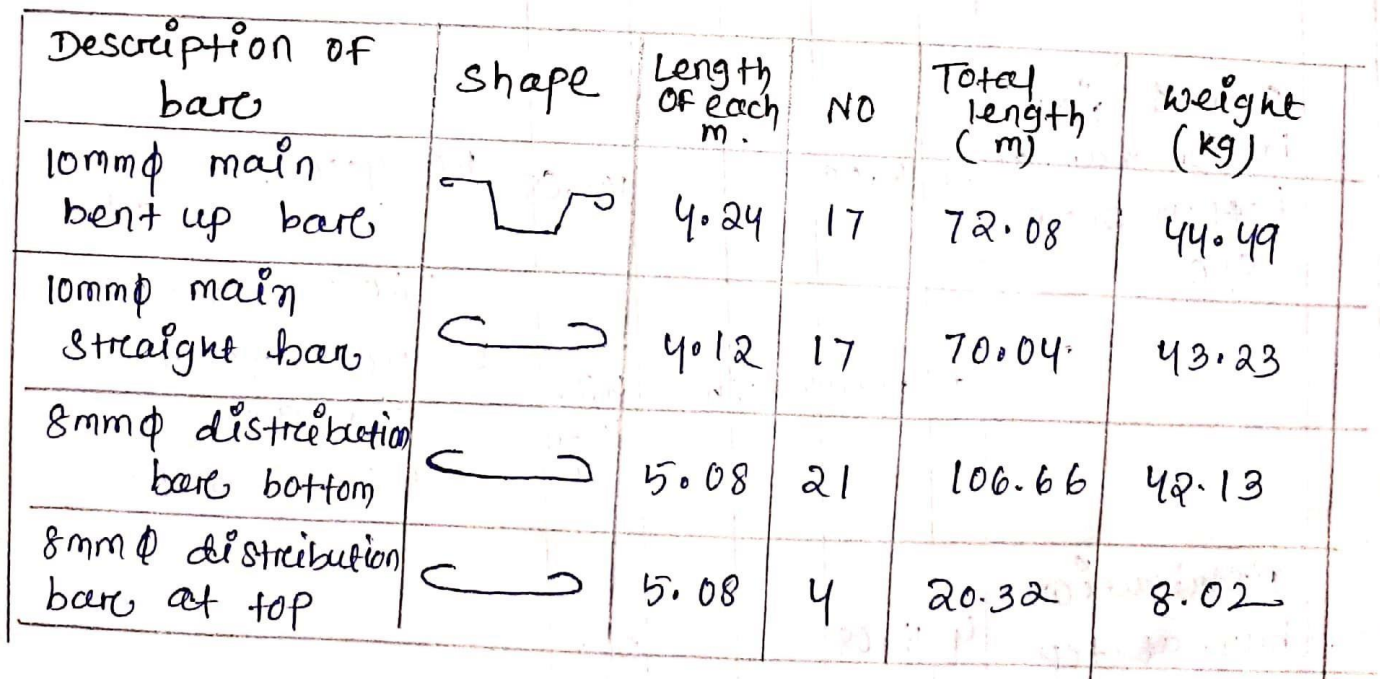 Description of bar shape Length of each m. NO Total length (m) weight (kg)
10mmϕ main bent up bar 4.24 17 72.08 44.49
10mmϕ main straight bar 4.12 17 70.04 43.23
8mmϕ distribution bar bottom 5.08 21 106.66 42.13
8mmϕ distribution bar at top 5.08 4 20.32 8.02